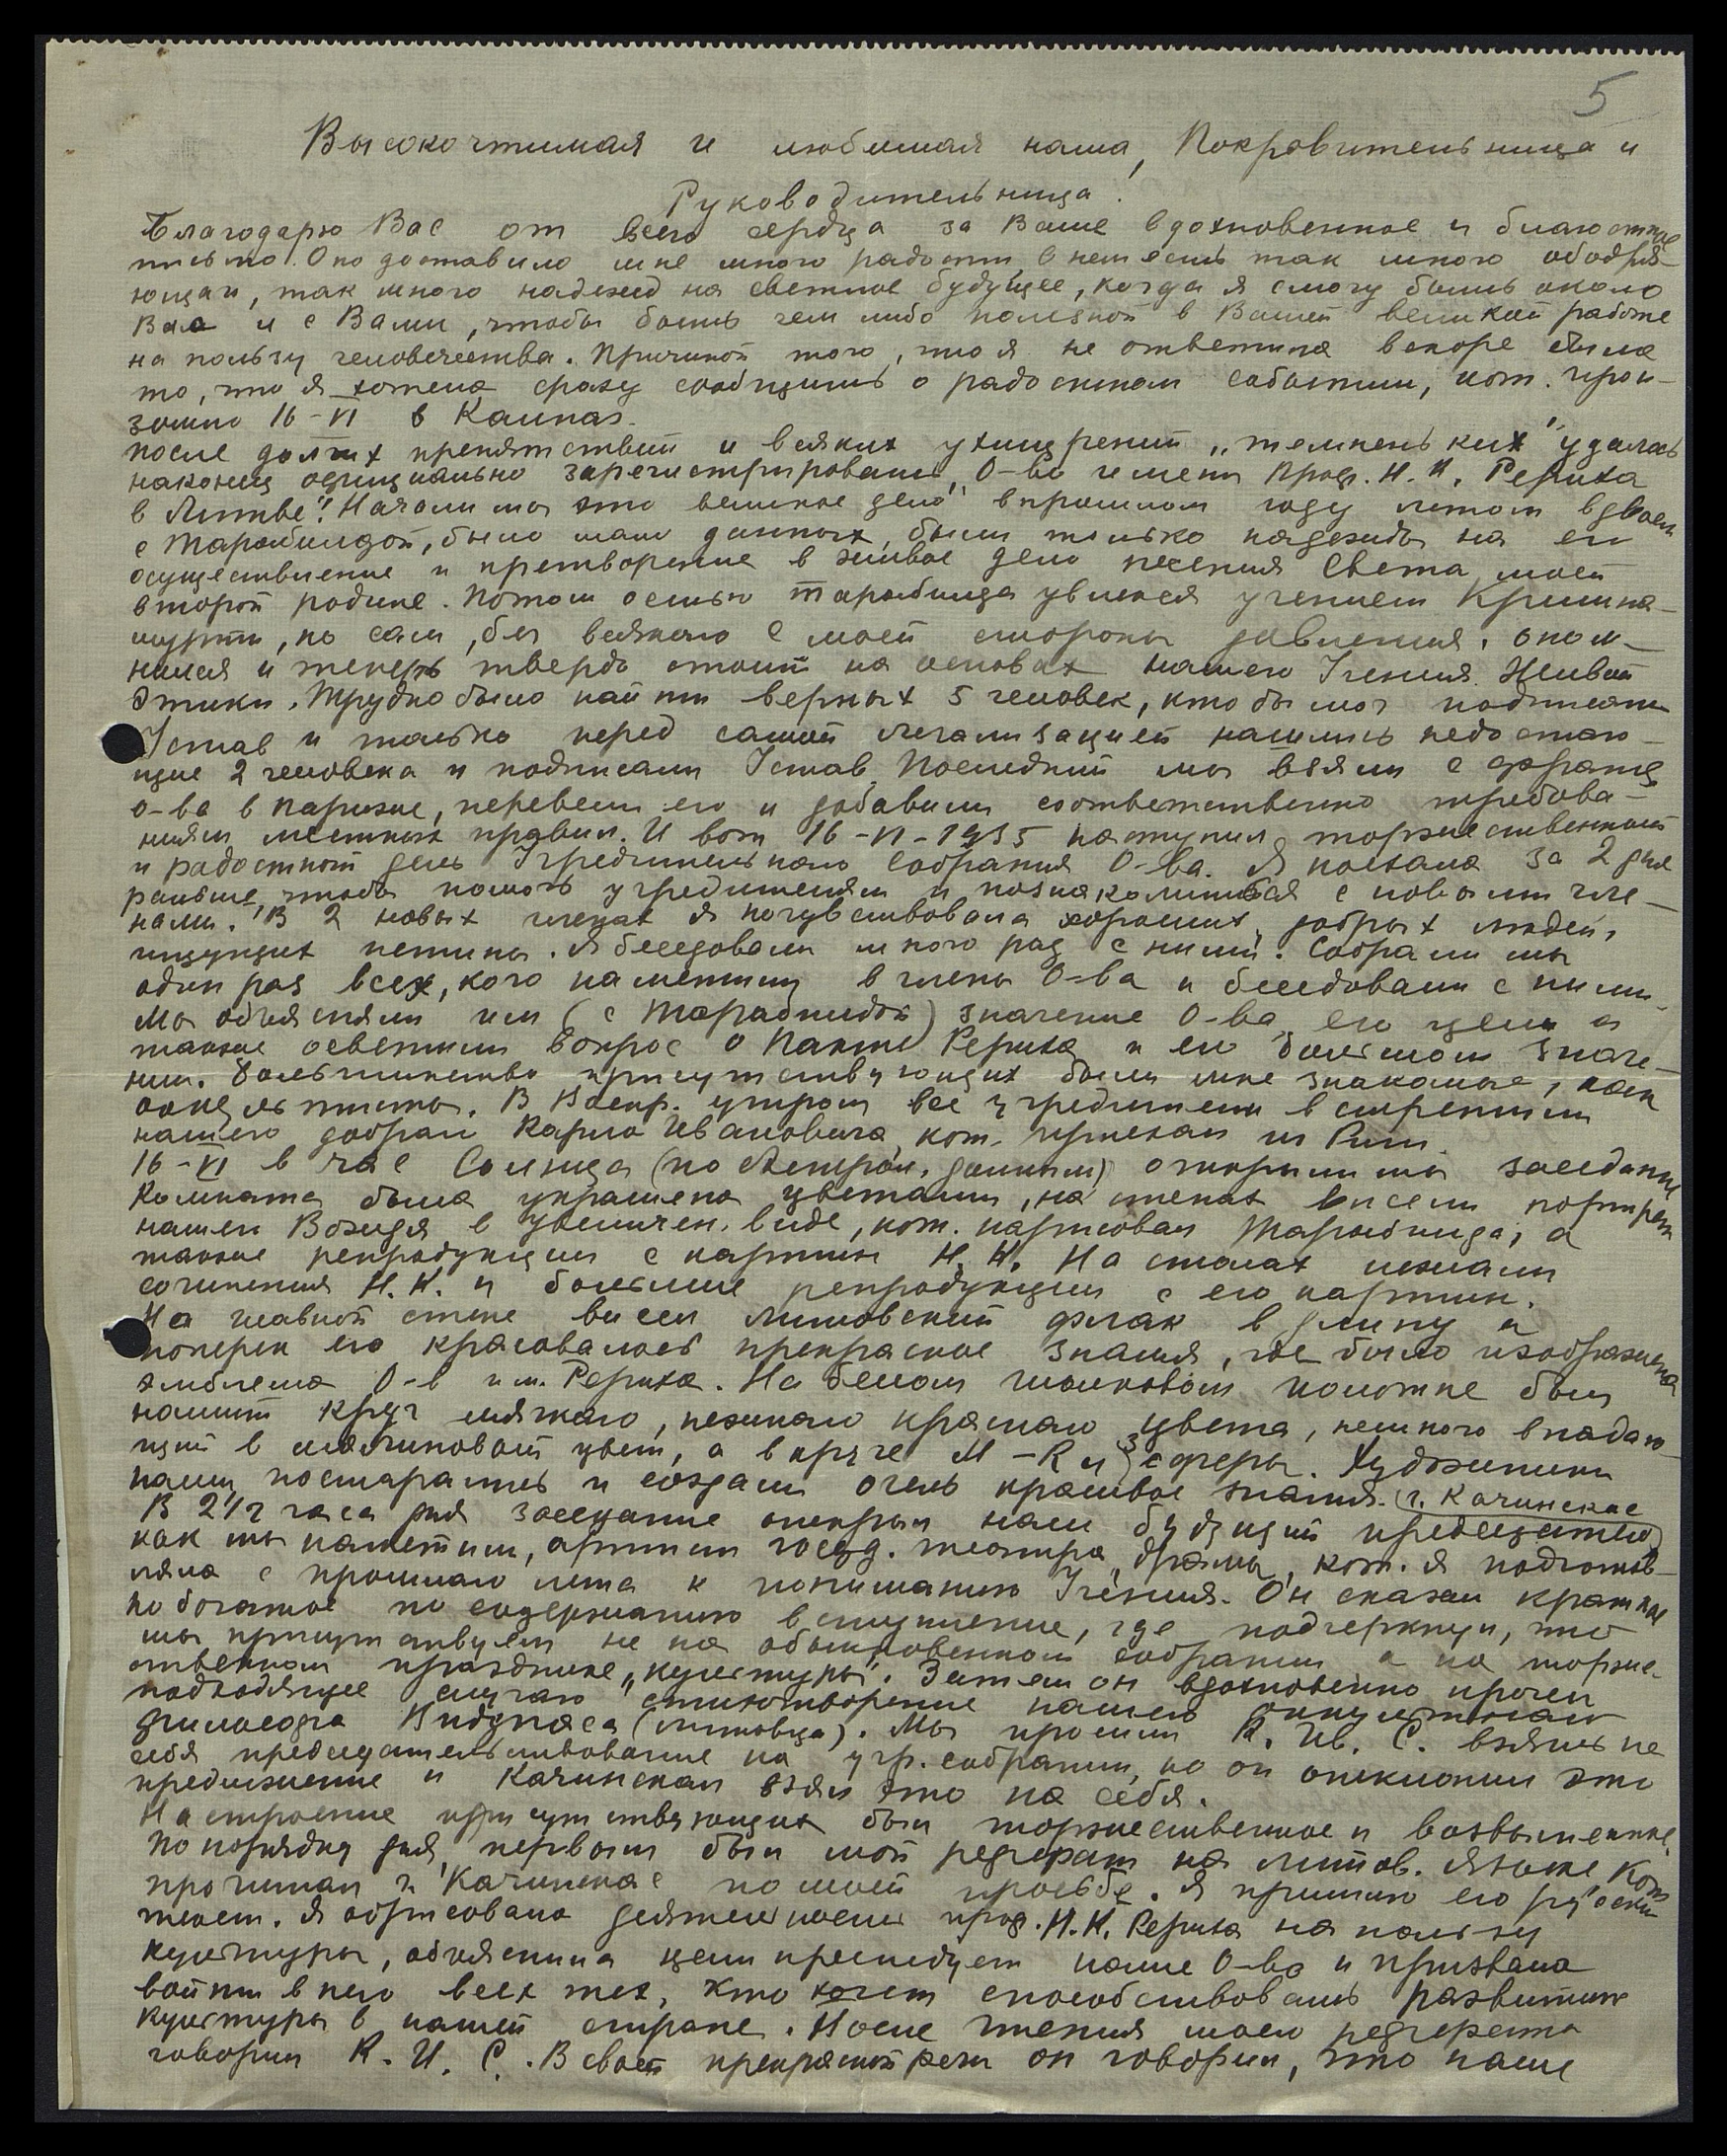 5
Высокочтимая и любимая наша, Покровительница и
Руководительница!
Благодарю Вас от всего сердца за Ваше вдохновенное и благостное
письмо. Оно доставило мне много радости. В нем есть так много ободря-
ющаго, так много надежд на светлое будущее, когда я смогу быть около
Вас и с Вами, чтобы быть чем либо полезной в Вашей великой работе
на пользу человечества. Причиной того, что я не ответила вскоре была
то, что я хотела сразу сообщить о радостном событии, кот. прои-
зошло 16-VI в Каунас.
После долгих препятствий и всяких ухищрений „темненьких" удалось
наконец официально зарегистрировать „О-во имени Проф. Н. К. Рериха
в Литве". Начали мы это великое дело в прошлом году летом вдвоем
с Тарабильдой, было мало данных, были только надежды на его
осуществление и претворение в живое дело несения Света моей
второй родине. Потом осенью Тарабильда увлекся учением Кришна-
мурти, но сам, без всякого с моей стороны давления, опом-
нился и теперь твердо стоит на основах нашего Учения Живой
Этики. Трудно было найти верных 5 человек, кто бы мог подписать
Устав и только перед самой легализацией нашлись недостаю-
щие 2 человека и подписали Устав. Последний мы взяли с франц.
о-ва в Париже, перевели его и добавили соответственно требова-
ниям местных правил. И вот 16-VI-1935 наступил торжественный
и радостный день Учредительного Собрания О-ва. Я поехала за 2 дня
раньше, чтобы помочь учредителям и познакомиться с новыми чле-
нами. В 2 новых членах я почувствовала хороших, добрых людей,
ищущих истины. Я беседовала много раз с ними. Собрали мы
один раз всех, кого наметили в члены О-ва и беседовали с ними.
Мы объясняли им (с Тарабильдой) значение О-ва, его цели и
также осветили вопрос о Пакте Рериха и его большом значе-
нии. Большинство присутствующих были мне знакомые, как
оккультисты. В Воскр. утром все учредители встретили
нашего доброго Карла Ивановича, кот. приехал из Риги.
16-VI в час Солнца (по Астрол. данным) открыли мы заседание
Комната была украшена цветами, на стенах висели портрет
нашего Вождя в увеличен. виде, кот. нарисовал Тарабильда, а
также репродукции с картин Н. К. На столах лежали
сочинения Н. К. и большие репродукции с его картин.
На главной стене висел литовский флаг в длину и
поперек его красовалось прекрасное знамя, где было изображена
эмблема О-в им. Рериха. На белом шелковом полотне был
нашит круг мягкаго, нежнаго краснаго цвета, немного впадаю-
щий в малиновый цвет, а в круге М-R и 3 сферы. Художники
наши постарались и создали очень красивое знамя.
В 2 1/2 часа дня заседание открыл наш будущий председатель (г. Качинскас)
как мы наметили, артист госуд. театра „драмы", кот. я подготов-
ляла с прошлаго лета к пониманию Учения. Он сказал краткое
но богатое по содержанию вступление, где подчеркнул, что
мы присутствуем не на обыкновенном собрании а на торже-
ственном празднике „культуры". Затем он вдохновенно прочел
подходящее случаю стихотворение нашего оккультнаго
философа Видунаса (литовца). Мы просили К. Ив. С. взять на
себя председательствование на учр. собрании, но он отклонил это
предложение и Качинскас взял это на себя.
Настроение присутствующих был торжественное и возвышенное.
По порядку дня, первым был мой реферат на литов. языке кот.
прочитал г. Качинскас по моей просьбе. Я прилагаю его русский
текст. Я обрисовала деятельность проф. Н. К. Рериха на пользу
культуры, объяснила цели преследует наше О-во и призвала
войти в него всех тех, кто хочет способствовать развитию
культуры в нашей стране. После чтения моего реферата
говорил К. И. С. В своей прекрасной речи он говорил, что наше